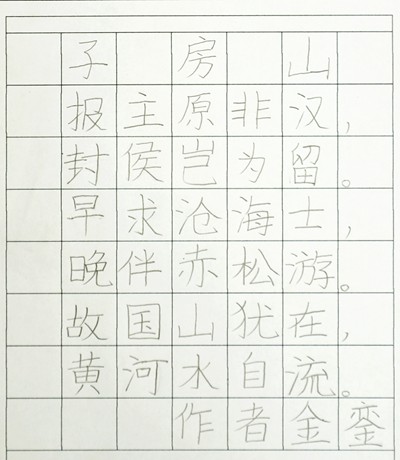 子房山
报主原非汉，
封侯岂为留。
早求沧海士，
晚伴赤松游。
故国山犹在，
黄河水自流。
作者金銮